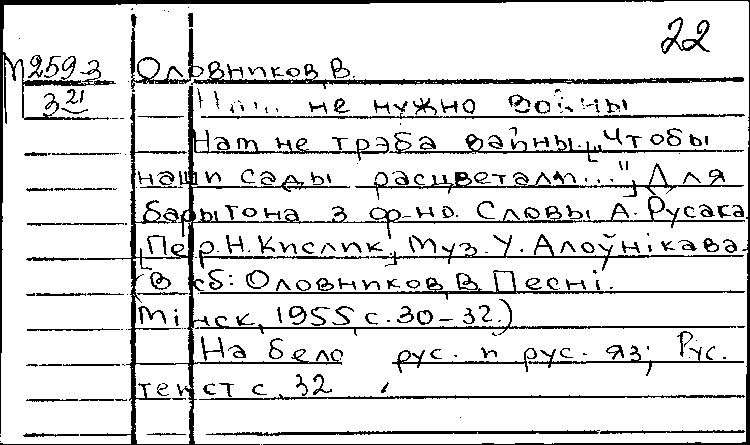 22
М 259-3
3 21
Оловников, В.
Нам не нужно войны
Нам не трэба вайны. ["Чтобы
наши сады расцветали..."] Для
барытона з ф-но. Словы А. Русака
[Пер. Н. Кислик] Муз. У. Алоўнікава.
(В сб: Оловников, В. Песні.
Мінск, 1955, с. 30-32.)
На бело рус. и рус. яз; Рус.
текст с. 32